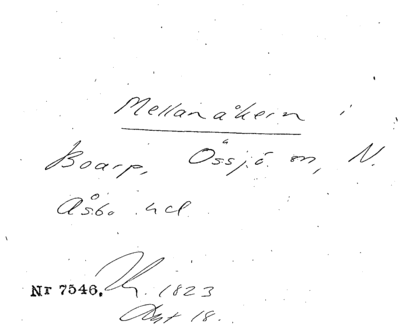 Mellanåkern i
Boarp, Össjö sn, N.
Åsbo hd
Nr 7546. 1823
Akt 18.